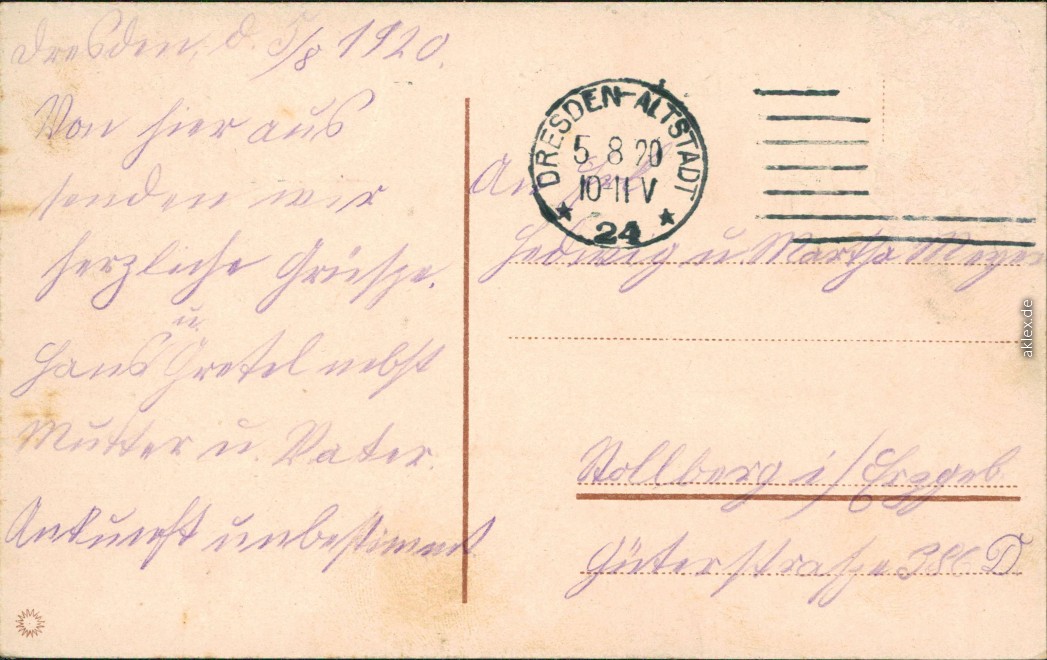 Dresden, d. 5/8 1920.
Von hier aus
senden wir
herzliche Grüsse.
Hans u. Gretel nebst
Mutter u. Vater.
Ankunft unbestimmt
DRESDEN-ALTSTADT
5 8 20
10-11 V
* 24 *
An
Hedwig u Martha Meyer
Stollberg i/Erzgeb
Güterstrasse 386 D
aklex.de